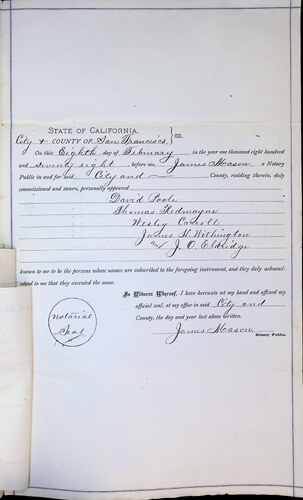 STATE OF CALIFORNIA.
City & COUNTY OF San Francisco, } ss.
On this Eighth day of February in the year one thousand eight hundred
and seventy eight before me, James Mason, a Notary
Public in and for said City and County, residing therein, duly
commissioned and sworn, personally appeared
David Poole
Thomas Redmayne
Wesley Carroll
James H. Withington
and J. O. Eldridge
known to me to be the persons whose names are subscribed to the foregoing instrument, and they duly acknowl-
edged to me that they executed the same.
In Witness Whereof, I have hereunto set my hand and affixed my
official seal, at my office in said City and
County, the day and year last above written.
notarial
Seal
James Mason
Notary Public.